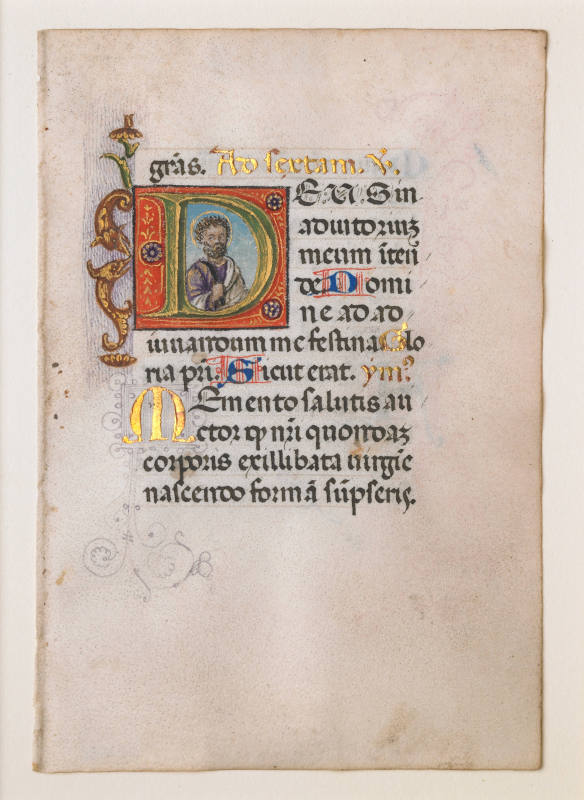 grãs. Ad sextam. V̇.
DEUS in
adiutoriuʒ
meum iten
de. Domi
ne ad ad
iuuandum me festina. Glo
ria pri. Sicut erat. ymꝰ.
MEmento salutis au
ctor qp nr̃i quondaʒ
corporis ex illibata uirgĩe
nascendo formã sũpseris.